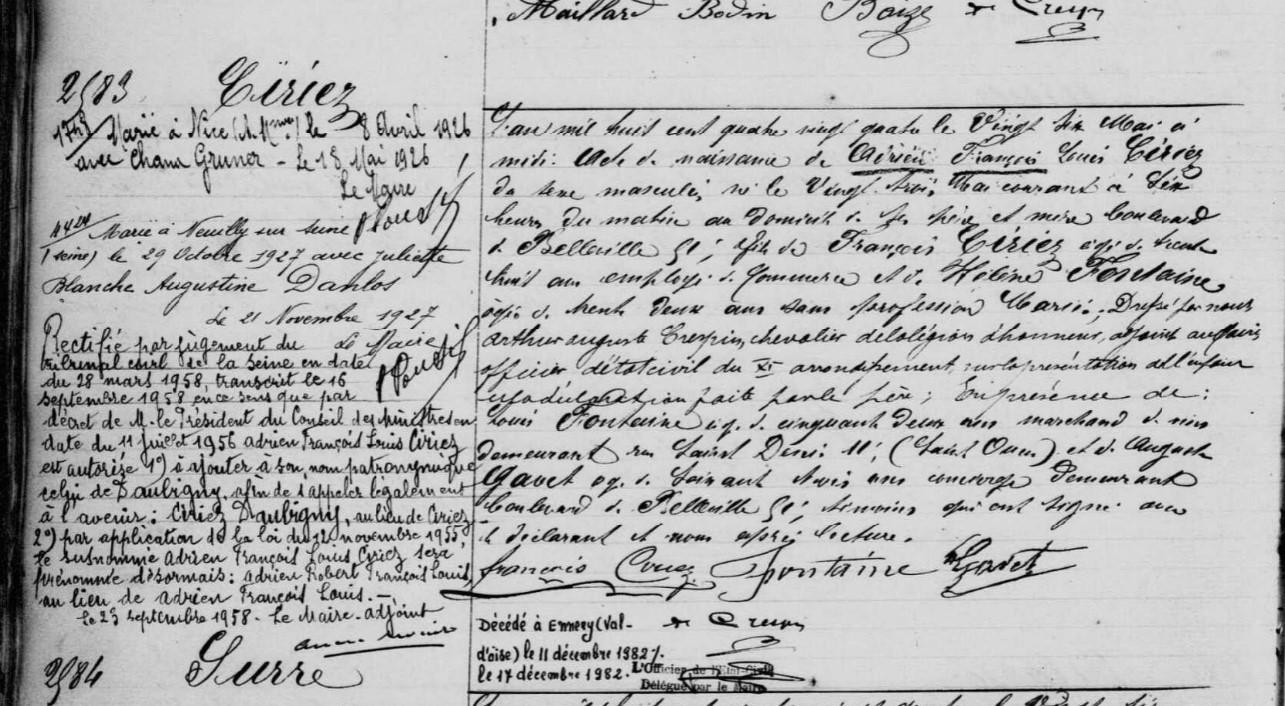 Maillard Bodin Baize Crespin
2583 Ciriez
Marié à Nice (A. Mmes) le 8 Avril 1926
avec Chana Gruner - Le 18 Mai 1926
Le Maire
Marié à Neuilly sur Seine
(Seine) le 29 Octobre 1927 avec Juliette
Blanche Augustine Danlos
Le 21 Novembre 1927
Le Maire
Rectifié par jugement du
tribunal civil de la Seine en date
du 28 mars 1958, transcrit le 16
septembre 1958 en ce sens que par
décret de M. le Président du Conseil des Ministres en
date du 11 juillet 1956 adrien François Louis Ciriez
est autorisé 1°) à ajouter à son nom patronymique
celui de Daubigny, afin de s'appeler légalement
à l'avenir : Ciriez Daubigny, au lieu de Ciriez
2°) par application de la loi du 12 novembre 1955,
le susnommé Adrien François Louis Ciriez sera
prénommé désormais : adrien Robert François Louis,
au lieu de adrien François Louis. -
Le 23 septembre 1958. Le Maire-adjoint
2584 Surre
L'an mil huit cent quatre vingt quatre le Vingt six Mai à
midi : Acte de naissance de Adrien François Louis Ciriez
du sexe masculin né le Vingt trois Mai courant à six
heures du matin au domicile de ses père et mère boulevard
de Belleville 51 ; fils de François Ciriez âgé de trente
huit ans employé de Commerce et de Hélène Fontaine
âgée de trente deux ans sans profession Mariés ; Dressé par nous
arthur auguste Crespin, chevalier de la légion d'honneur, adjoint au Maire
officier d'état civil du XIe arrondissement, sur la présentation de l'enfant
et la déclaration faite par le père ; En présence de :
Louis Fontaine âgé de cinquante deux ans marchand de vin
demeurant rue Saint Denis 11 ; (Saint Ouen) et de Auguste
Gavet âgé de soixante trois ans concierge demeurant
boulevard de Belleville 51 ; témoins qui ont signé avec
le déclarant et nous après lecture.
françois Ciriez Fontaine Gavet
Crespin
Décédé à Ennery (Val-
d'oise) le 11 décembre 1982 /.
le 17 décembre 1982.
L'Officier de l'Etat-Civil
Délégué par le Maire